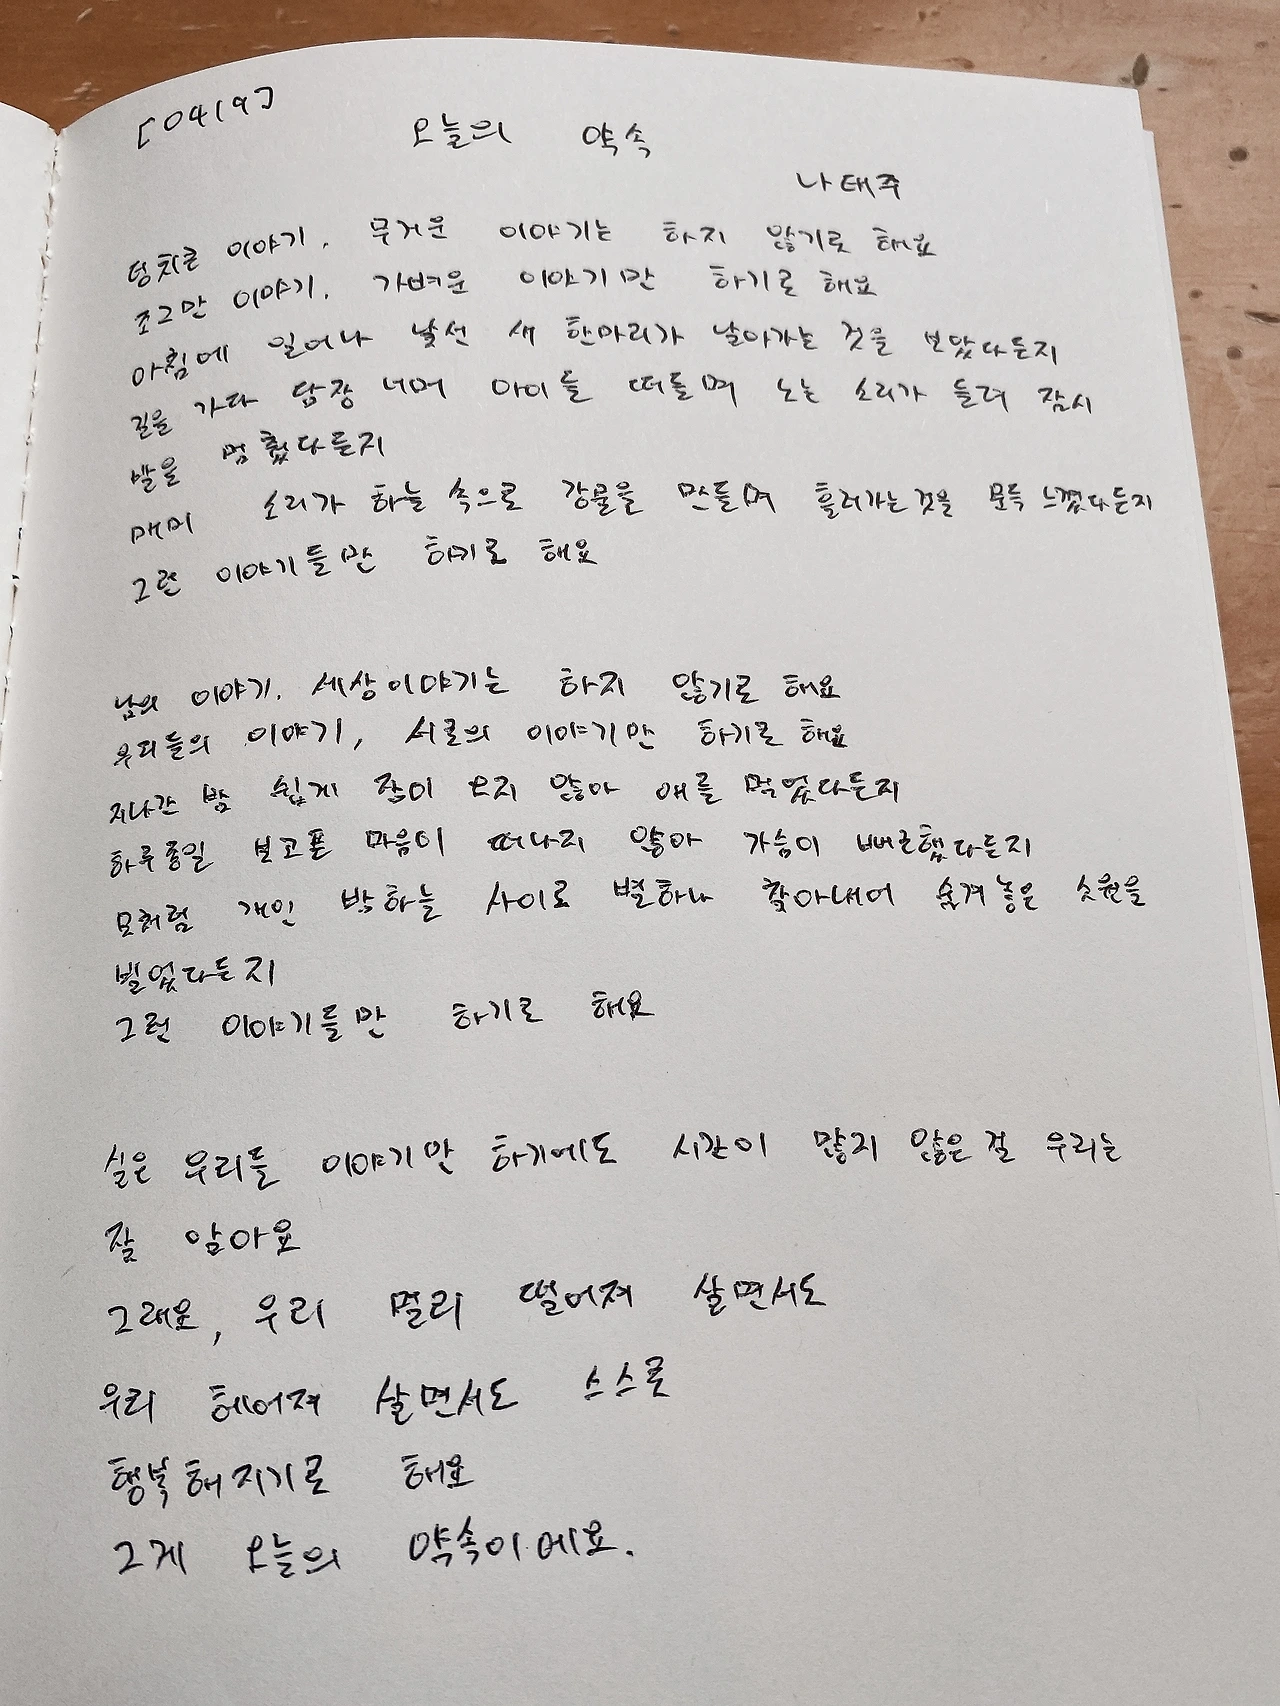 [0419]
오늘의 약속
나태주
덩치큰 이야기, 무거운 이야기는 하지 않기로 해요
조그만 이야기, 가벼운 이야기만 하기로 해요
아침에 일어나 낯선 새 한마리가 날아가는 것을 보았다든지
길을 가다 담장 너머 아이들 떠들며 노는 소리가 들려 잠시
발을 멈췄다든지
매미 소리가 하늘 속으로 강물을 만들며 흘러가는것을 문득 느꼈다든지
그런 이야기들만 하기로 해요
남의 이야기, 세상이야기는 하지 않기로 해요
우리들의 이야기, 서로의 이야기만 하기로 해요
지나간 밤 쉽게 잠이 오지 않아 애를 먹었다든지
하루종일 보고픈 마음이 떠나지 않아 가슴이 뻐근했다든지
모처럼 개인 밤하늘 사이로 별하나 찾아내어 숨겨놓은 소원을
빌었다든지
그런 이야기들만 하기로 해요
실은 우리들 이야기만 하기에도 시간이 많지 않은 걸 우리는
잘 알아요
그래요, 우리 멀리 떨어져 살면서도
우리 헤어져 살면서도 스스로
행복해지기로 해요
그게 오늘의 약속이에요.